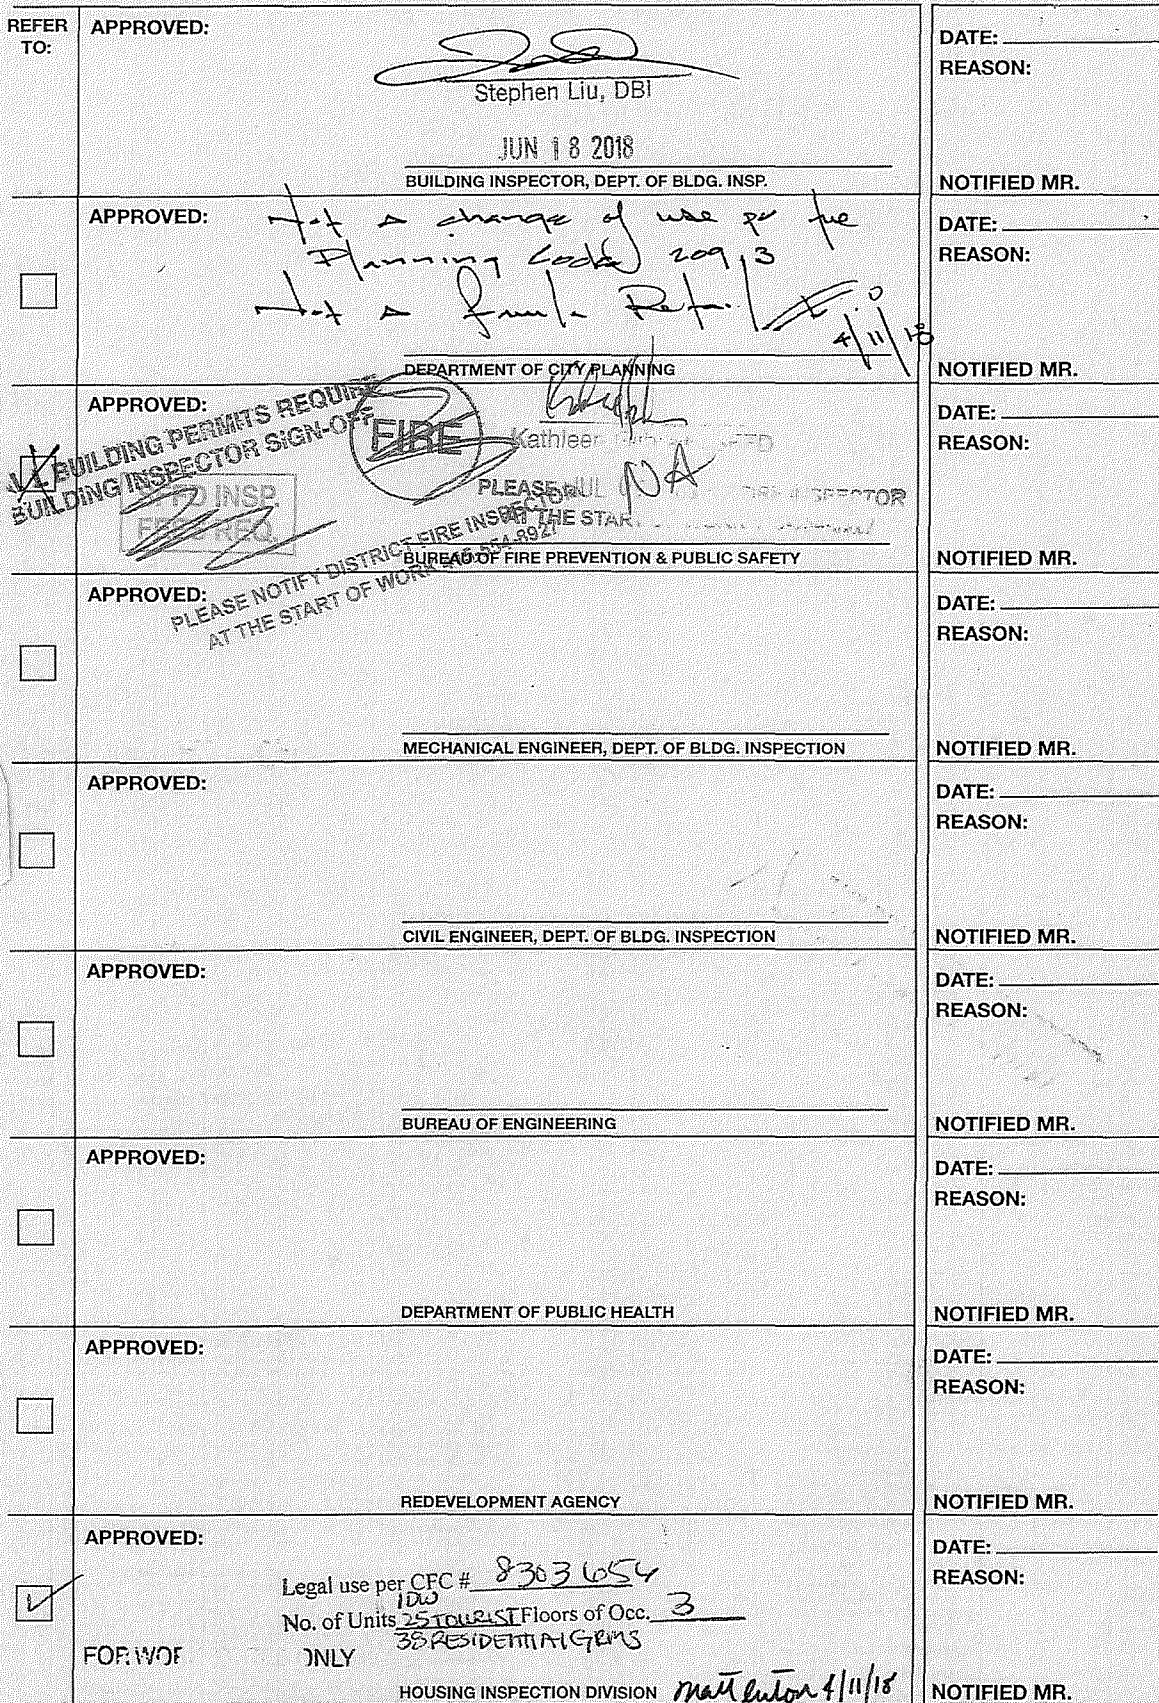 REFER TO:
APPROVED:
Stephen Liu, DBI
JUN 18 2018
BUILDING INSPECTOR, DEPT. OF BLDG. INSP.
DATE:
REASON:
NOTIFIED MR.
APPROVED:
Not a change of use per the
Planning Code 209.3
Not a Formula Retail
4/11/18
DEPARTMENT OF CITY PLANNING
DATE:
REASON:
NOTIFIED MR.
APPROVED:
ALL BUILDING PERMITS REQUIRE
BUILDING INSPECTOR SIGN-OFF
FIRE
Kathleen
NA
SFFD INSP.
FEES REQ.
PLEASE JUL
INSPECTOR
AT THE START
PLEASE NOTIFY DISTRICT FIRE INSPECTOR
AT THE START OF WORK
BUREAU OF FIRE PREVENTION & PUBLIC SAFETY
DATE:
REASON:
NOTIFIED MR.
APPROVED:
MECHANICAL ENGINEER, DEPT. OF BLDG. INSPECTION
DATE:
REASON:
NOTIFIED MR.
APPROVED:
CIVIL ENGINEER, DEPT. OF BLDG. INSPECTION
DATE:
REASON:
NOTIFIED MR.
APPROVED:
BUREAU OF ENGINEERING
DATE:
REASON:
NOTIFIED MR.
APPROVED:
DEPARTMENT OF PUBLIC HEALTH
DATE:
REASON:
NOTIFIED MR.
APPROVED:
REDEVELOPMENT AGENCY
DATE:
REASON:
NOTIFIED MR.
APPROVED:
Legal use per CFC # 8303654
1DU
No. of Units 25 TOURIST Floors of Occ. 3
38 RESIDENTIAL GRMS
FOR WOR ONLY
HOUSING INSPECTION DIVISION 4/11/18
DATE:
REASON:
NOTIFIED MR.